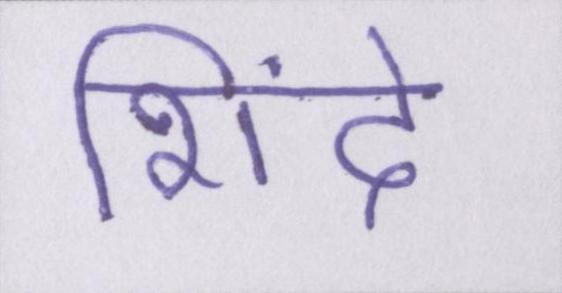 शिंदे